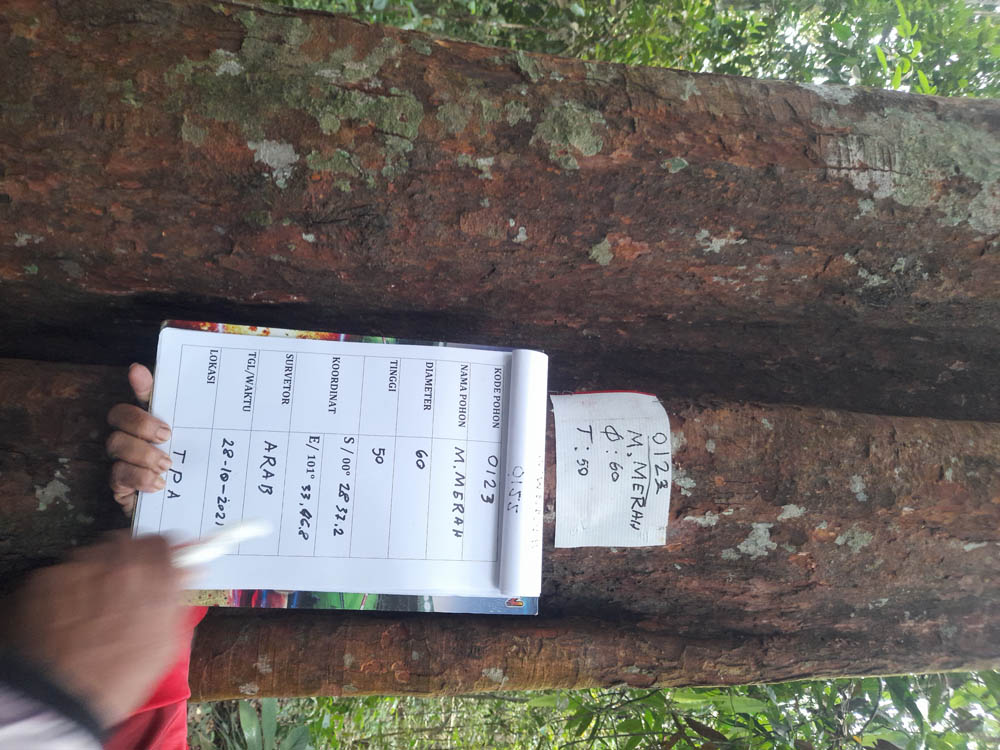 0123
M, MERAH
Φ : 60
T : 50
0122
KODE POHON 0123
NAMA POHON M. MERAH
DIAMETER 60
TINGGI 50
KOORDINAT S / 00° 28 37.2
E/ 101° 33, 46.8
SURVETOR ARAB
TGL/WAKTU 28-10-2021
LOKASI TPA